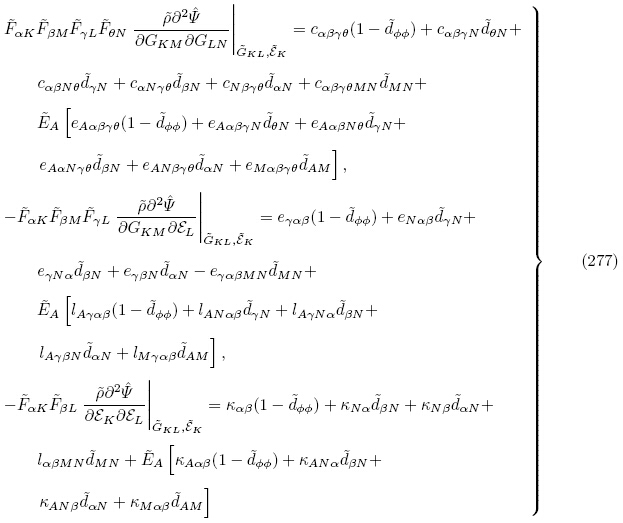 \tilde{F}_{\alpha K}\tilde{F}_{\beta M}\tilde{F}_{\gamma L}\tilde{F}_{\theta N} \left.\frac{\tilde{\rho}\partial^2\hat{\Psi}}{\partial G_{KM}\partial G_{LN}}\right|_{\tilde{G}_{KL},\tilde{\mathcal{E}}_K} = c_{\alpha\beta\gamma\theta}(1-\tilde{d}_{\phi\phi}) + c_{\alpha\beta\gamma N}\tilde{d}_{\theta N}+
c_{\alpha\beta N\theta}\tilde{d}_{\gamma N} + c_{\alpha N\gamma\theta}\tilde{d}_{\beta N} + c_{N\beta\gamma\theta}\tilde{d}_{\alpha N} + c_{\alpha\beta\gamma\theta MN}\tilde{d}_{MN}+
\tilde{E}_A \left[ e_{A\alpha\beta\gamma\theta}(1-\tilde{d}_{\phi\phi}) + e_{A\alpha\beta\gamma N}\tilde{d}_{\theta N} + e_{A\alpha\beta N\theta}\tilde{d}_{\gamma N}+
e_{A\alpha N\gamma\theta}\tilde{d}_{\beta N} + e_{AN\beta\gamma\theta}\tilde{d}_{\alpha N} + e_{M\alpha\beta\gamma\theta}\tilde{d}_{AM} \right],
-\tilde{F}_{\alpha K}\tilde{F}_{\beta M}\tilde{F}_{\gamma L} \left.\frac{\tilde{\rho}\partial^2\hat{\Psi}}{\partial G_{KM}\partial \mathcal{E}_L}\right|_{\tilde{G}_{KL},\tilde{\mathcal{E}}_K} = e_{\gamma\alpha\beta}(1-\tilde{d}_{\phi\phi}) + e_{N\alpha\beta}\tilde{d}_{\gamma N}+
e_{\gamma N\alpha}\tilde{d}_{\beta N} + e_{\gamma\beta N}\tilde{d}_{\alpha N} - e_{\gamma\alpha\beta MN}\tilde{d}_{MN}+
\tilde{E}_A \left[ l_{A\gamma\alpha\beta}(1-\tilde{d}_{\phi\phi}) + l_{AN\alpha\beta}\tilde{d}_{\gamma N} + l_{A\gamma N\alpha}\tilde{d}_{\beta N}+
l_{A\gamma\beta N}\tilde{d}_{\alpha N} + l_{M\gamma\alpha\beta}\tilde{d}_{AM} \right],
-\tilde{F}_{\alpha K}\tilde{F}_{\beta L} \left.\frac{\tilde{\rho}\partial^2\hat{\Psi}}{\partial \mathcal{E}_K\partial \mathcal{E}_L}\right|_{\tilde{G}_{KL},\tilde{\mathcal{E}}_K} = \kappa_{\alpha\beta}(1-\tilde{d}_{\phi\phi}) + \kappa_{N\alpha}\tilde{d}_{\beta N} + \kappa_{N\beta}\tilde{d}_{\alpha N}+
l_{\alpha\beta MN}\tilde{d}_{MN} + \tilde{E}_A \left[ \kappa_{A\alpha\beta}(1-\tilde{d}_{\phi\phi}) + \kappa_{AN\alpha}\tilde{d}_{\beta N}+
\kappa_{AN\beta}\tilde{d}_{\alpha N} + \kappa_{M\alpha\beta}\tilde{d}_{AM} \right]
(277)